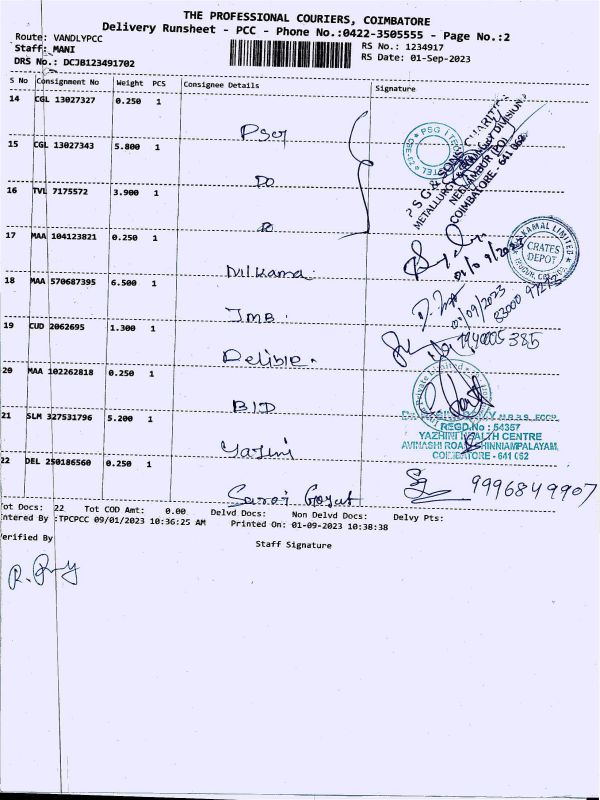 THE PROFESSIONAL COURIERS, COIMBATORE
Delivery Runsheet - PCC - Phone No.:0422-3505555 - Page No.:2
Route: VANDLYPCC
Staff: MANI
DRS No.: DCJB123491702
RS No.: 1234917
RS Date: 01-Sep-2023
S No Consignment No Weight PCS Consignee Details Signature
14 CGL 13027327 0.250 1
15 CGL 13027343 5.800 1
Do
16 TVL 7175572 3.900 1
17 MAA 104123821 0.250 1
Nilkamal
18 MAA 570687395 6.500 1
JMB.
19 CUD 2062695 1.300 1
Delible.
20 MAA 102262818 0.250 1
BID
21 SLM 327531796 5.200 1
Yazini
22 DEL 250186560 0.250 1
PSG & SONS CHARITIES
METALLURGY & FOUNDRY DIVISION
NEELAMBUR (PO)
COIMBATORE - 641 062
CRATES
DEPOT
01/09/2023
REGD.No : 54357
YAZHINI HEALTH CENTRE
AVINASHI ROAD, CHINNIAMPALAYAM,
COIMBATORE - 641 062
9996849907
Tot Docs: 22 Tot COD Amt: 0.00 Delvd Docs: Non Delvd Docs: Delvy Pts:
Entered By :TPCPCC 09/01/2023 10:36:25 AM Printed On: 01-09-2023 10:38:38
Verified By
Staff Signature